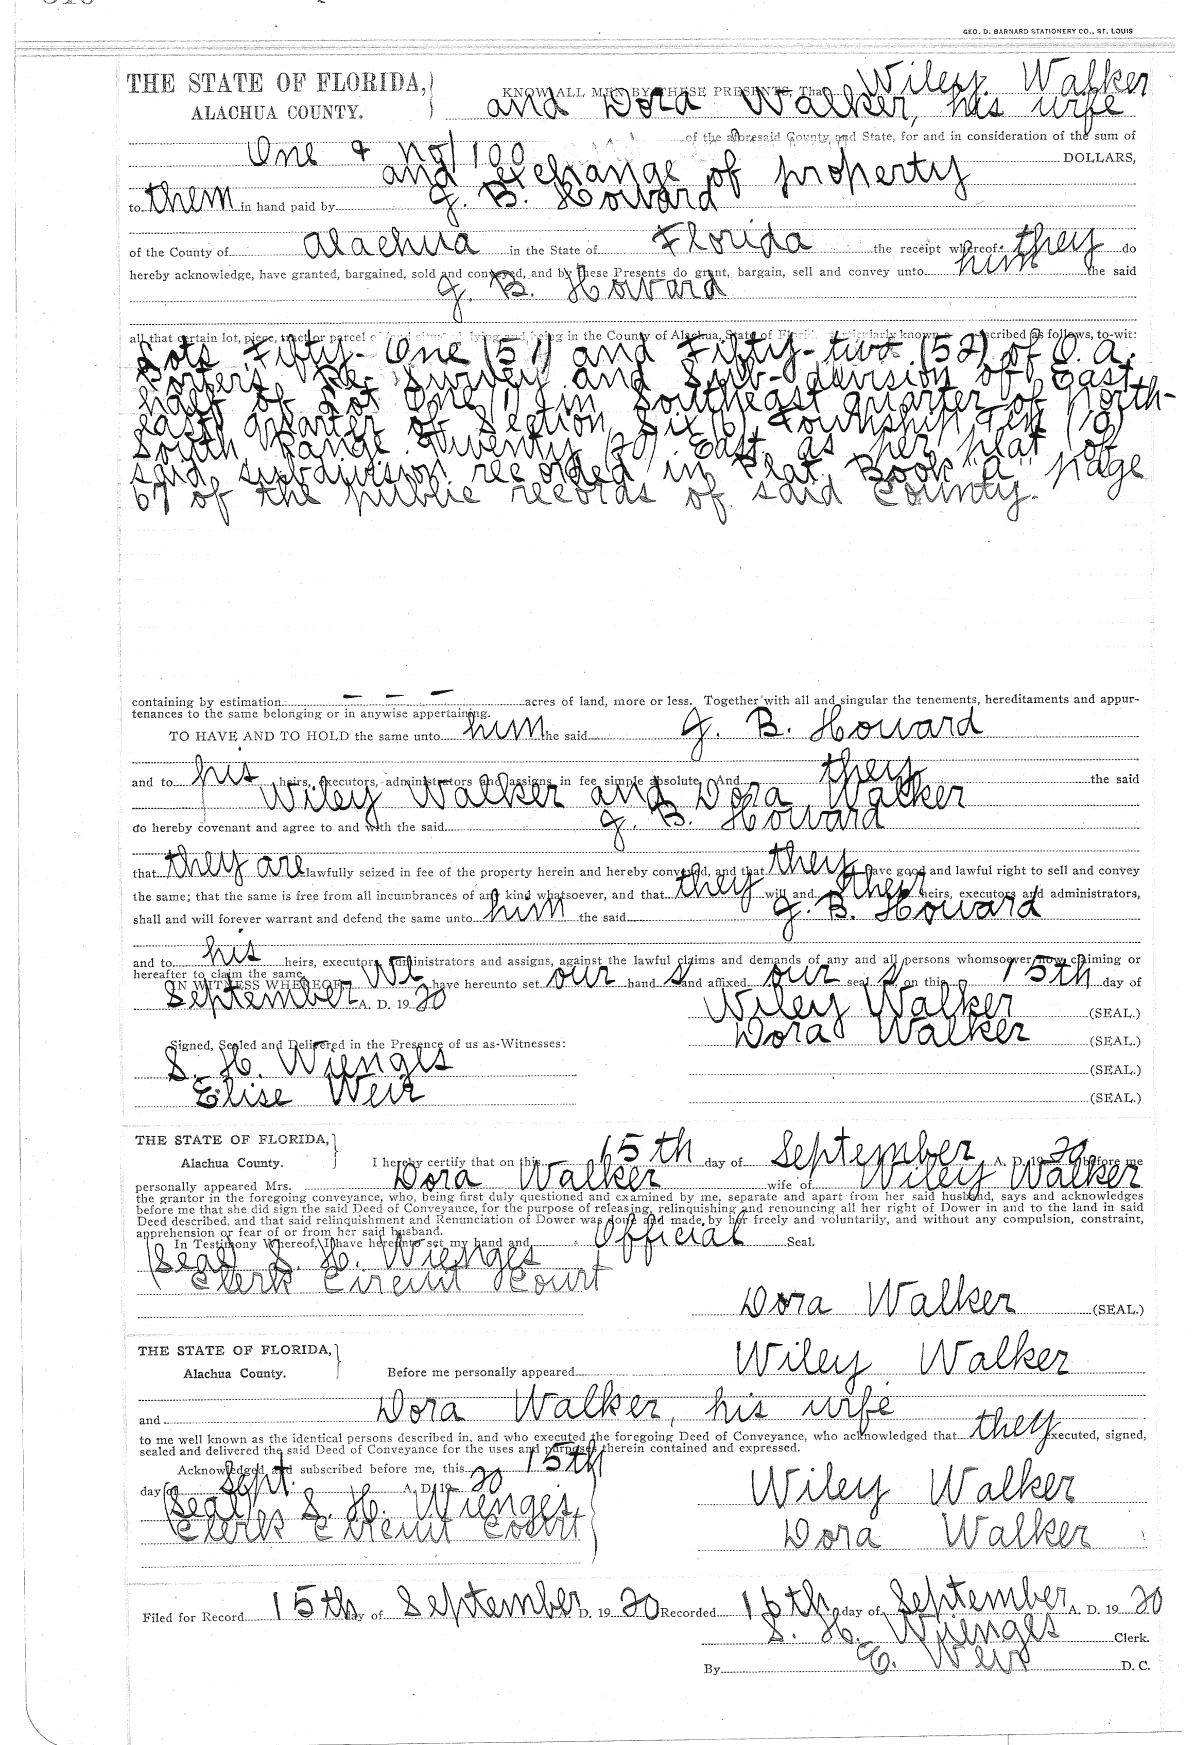 GEO. D. BARNARD STATIONERY CO., ST. LOUIS
THE STATE OF FLORIDA,
ALACHUA COUNTY.
KNOW ALL MEN BY THESE PRESENTS, That Wiley Walker
and Dora Walker, his wife
of the aforesaid County and State, for and in consideration of the sum of
One + no/100 DOLLARS,
and exchange of property
to them in hand paid by J. B. Howard
of the County of Alachua in the State of Florida the receipt whereof they do
hereby acknowledge, have granted, bargained, sold and conveyed, and by these Presents do grant, bargain, sell and convey unto him the said
J. B. Howard
all that certain lot, piece, tract or parcel of land situate lying and being in the County of Alachua, State of Florida particularly known described as follows, to-wit:
Lots Fifty-One (51) and Fifty-two (52) of O. A.
Porters Re-Survey and Sub-division of East
half of Lot One (1) in Southeast quarter of North-
east quarter of Section Six (6), Township Ten (10)
South Range Twenty (20) East, as per plat of
said subdivision recorded in Plat Book "a" page
67 of the public records of said County.
containing by estimation - - - acres of land, more or less. Together with all and singular the tenements, hereditaments and appur-
tenances to the same belonging or in anywise appertaining.
TO HAVE AND TO HOLD the same unto him he said J. B. Howard
and to his heirs, executors, administrators and assigns, in fee simple absolute. And they the said
Wiley Walker and Dora Walker
do hereby covenant and agree to and with the said J. B. Howard
that they are lawfully seized in fee of the property herein and hereby conveyed, and that they have good and lawful right to sell and convey
the same; that the same is free from all incumbrances of any kind whatsoever, and that they will and their heirs, executors and administrators,
shall and will forever warrant and defend the same unto him the said J. B. Howard
and to his heirs, executors, administrators and assigns, against the lawful claims and demands of any and all persons whomsoever now claiming or
hereafter to claim the same.
IN WITNESS WHEREOF, We have hereunto set our hand s and affixed our seal s on this 15th day of
September A. D. 1920
Wiley Walker (SEAL.)
Dora Walker (SEAL.)
Signed, Sealed and Delivered in the Presence of us as Witnesses:
S. H. Wienges (SEAL.)
Elise Weir (SEAL.)
THE STATE OF FLORIDA,
Alachua County.
I hereby certify that on this 15th day of September A. D. 1920 before me
personally appeared Mrs. Dora Walker wife of Wiley Walker
the grantor in the foregoing conveyance, who, being first duly questioned and examined by me, separate and apart from her said husband, says and acknowledges
before me that she did sign the said Deed of Conveyance, for the purpose of releasing, relinquishing and renouncing all her right of Dower in and to the land in said
Deed described, and that said relinquishment and Renunciation of Dower was done and made, by her freely and voluntarily, and without any compulsion, constraint,
apprehension or fear of or from her said husband.
In Testimony Whereof, I have hereunto set my hand and Official Seal.
(Seal) S. H. Wienges
Clerk Circuit Court
Dora Walker (SEAL.)
THE STATE OF FLORIDA,
Alachua County.
Before me personally appeared Wiley Walker
and Dora Walker, his wife
to me well known as the identical persons described in, and who executed the foregoing Deed of Conveyance, who acknowledged that they executed, signed,
sealed and delivered the said Deed of Conveyance for the uses and purposes therein contained and expressed.
Acknowledged and subscribed before me, this 15th
day of Sept. A. D. 1920
Wiley Walker
(Seal) S. H. Wienges
Clerk Circuit Court
Dora Walker
Filed for Record 15th day of September D. 1920 Recorded 16th day of September A. D. 1920
S. H. Wienges Clerk.
By E. Weir D. C.